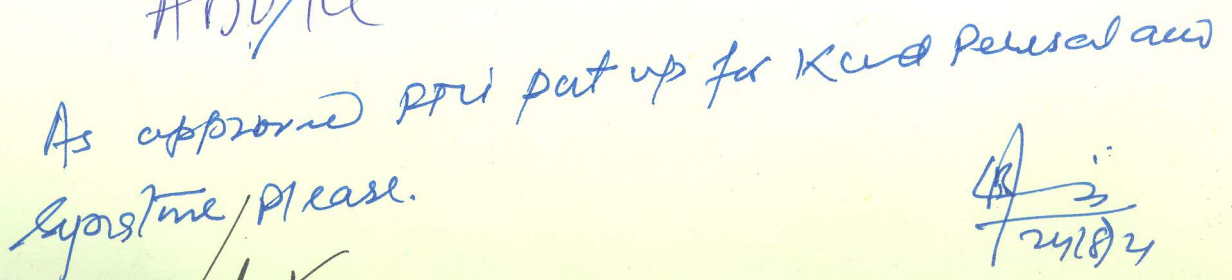 As approved put up for Kind Perusal and
Signature please.
24/8/21